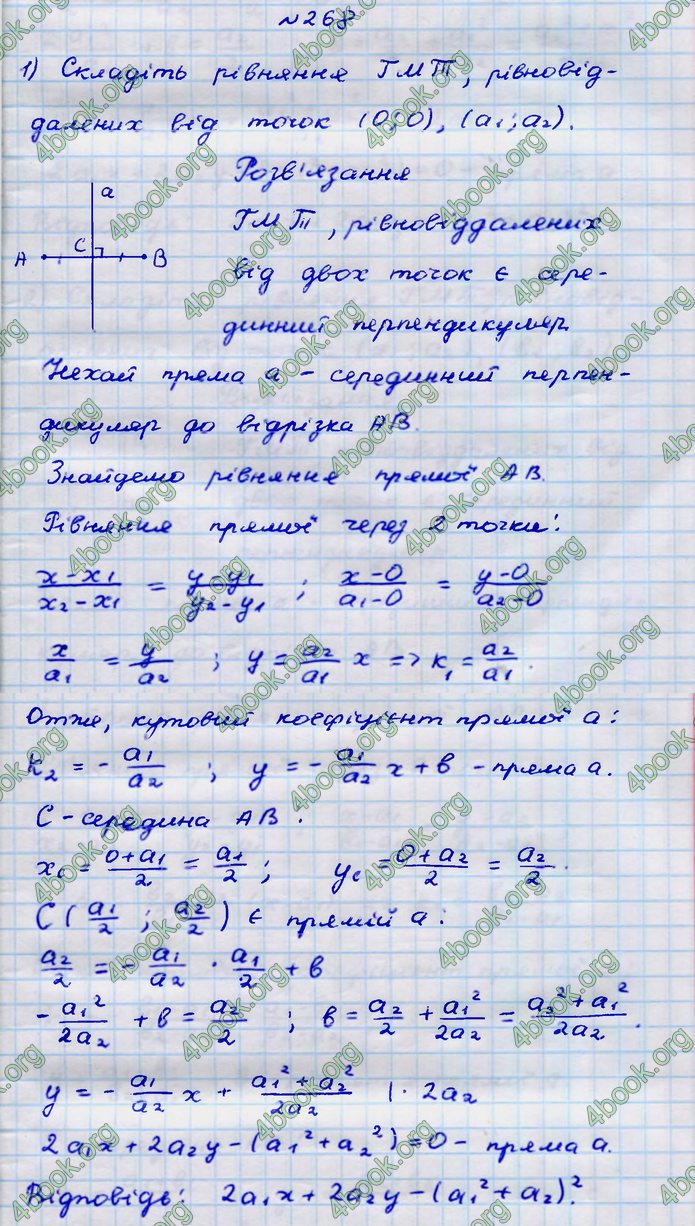 №268
1) Складіть рівняння ГМТ, рівновід-
далених від точок (0;0), (a₁;a₂).
Розв'язання
ГМТ, рівновіддалених
від двох точок є сере-
динний перпендикуляр.
a
A C B
Нехай пряма a - серединний перпен-
дикуляр до відрізка AB.
Знайдемо рівняння прямої AB.
Рівняння прямої через 2 точки:
(x-x₁)/(x₂-x₁) = (y-y₁)/(y₂-y₁) ; (x-0)/(a₁-0) = (y-0)/(a₂-0)
x/a₁ = y/a₂ ; y = a₂/a₁ x => k₁ = a₂/a₁.
Отже, кутовий коефіцієнт прямої a:
k₂ = - a₁/a₂ ; y = - a₁/a₂ x + b - пряма a.
C - середина AB.
x_c = (0+a₁)/2 = a₁/2 ; y_c = (0+a₂)/2 = a₂/2.
C (a₁/2 ; a₂/2) є прямій a:
a₂/2 = - a₁/a₂ · a₁/2 + b
- a₁²/2a₂ + b = a₂/2 ; b = a₂/2 + a₁²/2a₂ = (a₂²+a₁²)/2a₂.
y = - a₁/a₂ x + (a₁²+a₂²)/2a₂ | · 2a₂
2a₁x + 2a₂y - (a₁²+a₂²) = 0 - пряма a.
Відповідь: 2a₁x + 2a₂y - (a₁²+a₂)².
4book.org